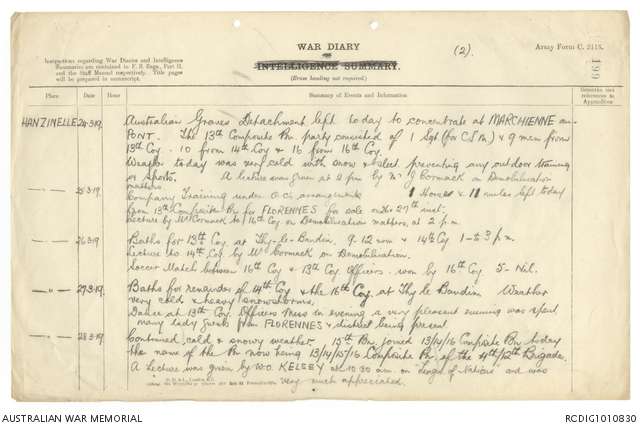 WAR DIARY
(2).
Army Form C. 2118.
Instructions regarding War Diaries and Intelligence
Summaries are contained in F. S. Regs., Part II.
and the Staff Manual respectively. Title pages
will be prepared in manuscript.
INTELLIGENCE SUMMARY.
(Erase heading not required.)
199
Place
Date
Hour
Summary of Events and Information
Remarks and
references to
Appendices
HANZINELLE 24.3.19. Australian Graves Detachment left today to concentrate at MARCHIENNE au-
PONT. The 13th Composite Bn. party consisted of 1 Sgt (for C.S.M.) & 9 men from
13th Coy. 10 from 14th Coy & 16 from 16th Coy.
Weather today was very cold with snow & sleet preventing any outdoor training
or sports. A lecture was given at 2 pm by Mr J Cormack on Demobilisation
matters.
25.3.19. Company Training under O.C's arrangements. 1 Horse & 11 mules left today
from 13th Composite Bn for FLORENNES for sale on the 27th inst.
Lecture by Mr Cormack to 16th Coy on Demobilisation matters, at 2 p.m.
26.3.19. Baths for 13th Coy. at Thy-le-Baudin. 9-12 noon & 14th Coy 1-3 p.m.
Lecture to 14th Coy by Mr Cormack on Demobilisation.
Soccer Match between 16th Coy & 13th Coy Officers. won by 16th Coy 5-Nil.
27.3.19. Baths for remainder of 14th Coy & the 16th Coy at Thy le Baudin Weather
very cold & heavy snowstorms.
Dance at 13th Coy Officers Mess in evening a very pleasant evening was spent
many lady guests from FLORENNES & district being present.
28.3.19. Continued cold & snowy weather. 15th Bn. joined 13/14/16 Composite Bn today
the name of the Bn now being 13/14/15/16 Composite Bn. of the 4th/12th Brigade.
A Lecture was given by W.O. KELSEY at 10.30 am. on "League of Nations" and was
very much appreciated.
AUSTRALIAN WAR MEMORIAL
RCDIG1010830